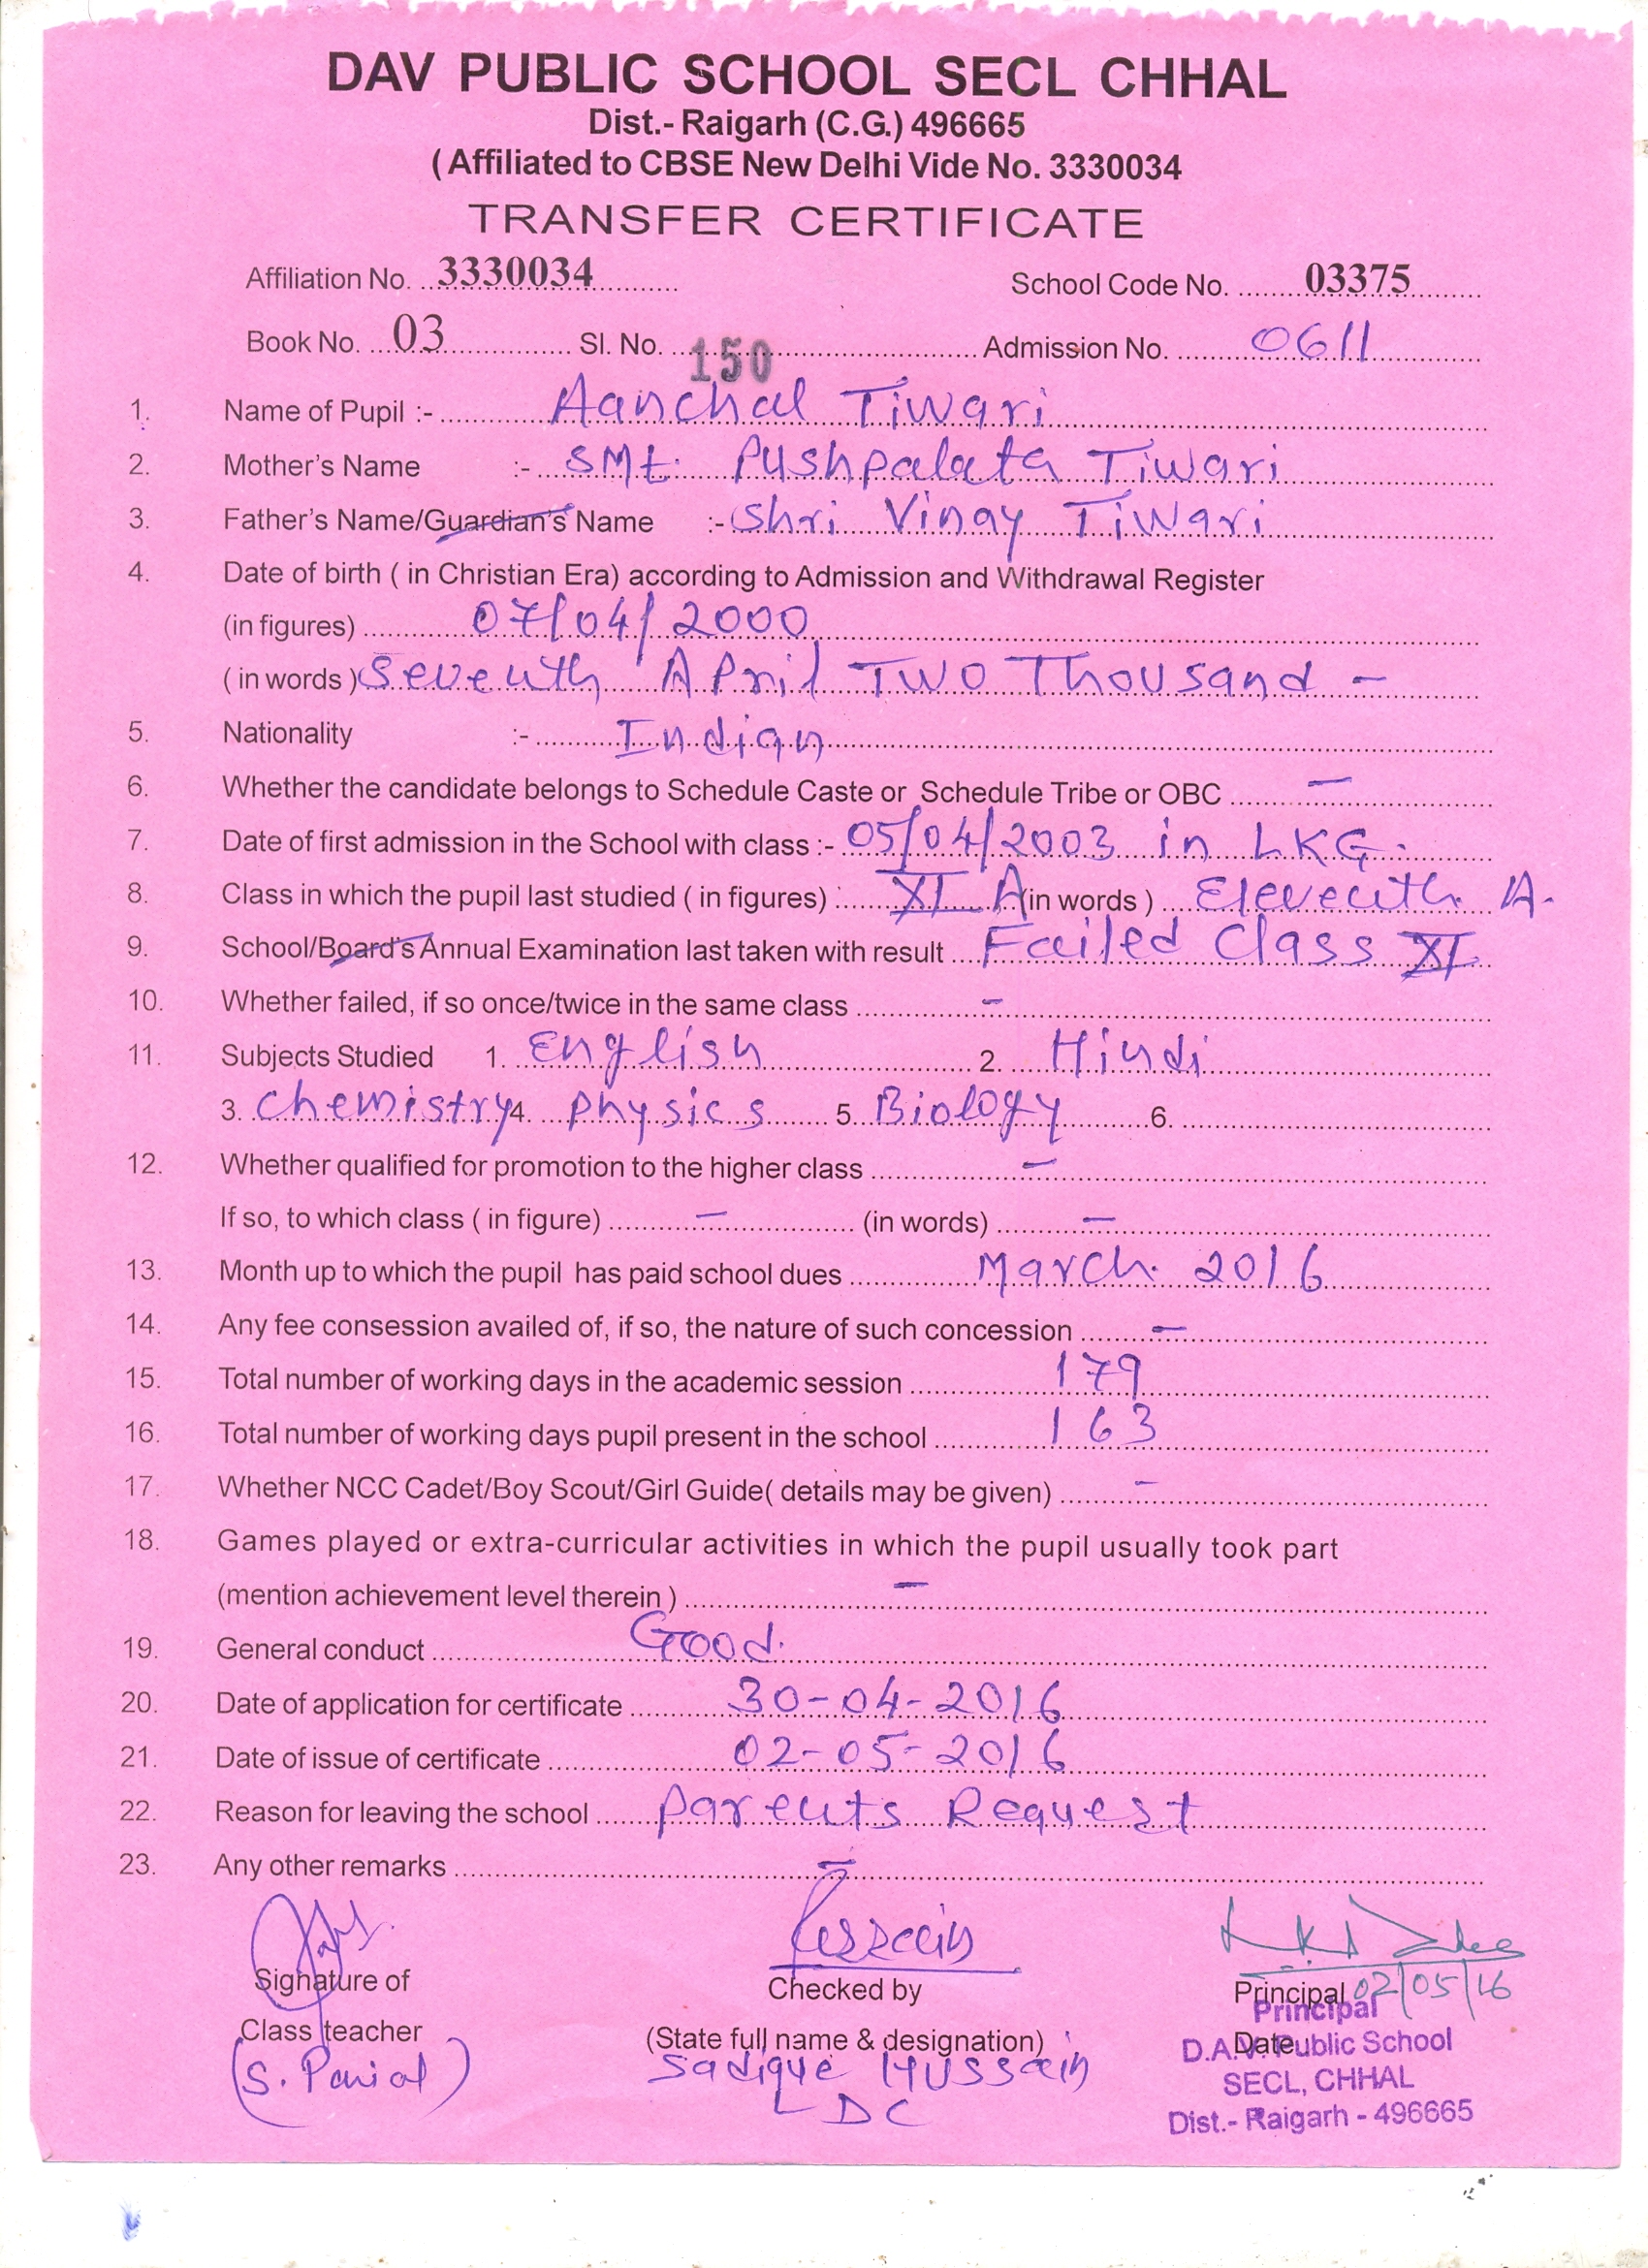 DAV PUBLIC SCHOOL SECL CHHAL
Dist.- Raigarh (C.G.) 496665
( Affiliated to CBSE New Delhi Vide No. 3330034
TRANSFER CERTIFICATE
Affiliation No. 3330034 School Code No. 03375
Book No. 03 Sl. No. 150 Admission No. 0611
1. Name of Pupil :- Aanchal Tiwari
2. Mother's Name :- SMt. Pushpalata Tiwari
3. Father's Name/Guardian's Name :- Shri Vinay Tiwari
4. Date of birth ( in Christian Era) according to Admission and Withdrawal Register
(in figures) 07/04/2000
( in words ) Seventh April Two Thousand -
5. Nationality :- Indian
6. Whether the candidate belongs to Schedule Caste or Schedule Tribe or OBC -
7. Date of first admission in the School with class :- 05/04/2003 in LKG.
8. Class in which the pupil last studied ( in figures) XI A (in words ) Eleventh A.
9. School/Board's Annual Examination last taken with result Failed Class XI
10. Whether failed, if so once/twice in the same class -
11. Subjects Studied 1. English 2. Hindi
3. Chemistry 4. Physics 5. Biology 6.
12. Whether qualified for promotion to the higher class -
If so, to which class ( in figure) - (in words) -
13. Month up to which the pupil has paid school dues March. 2016
14. Any fee consession availed of, if so, the nature of such concession -
15. Total number of working days in the academic session 179
16. Total number of working days pupil present in the school 163
17. Whether NCC Cadet/Boy Scout/Girl Guide( details may be given) -
18. Games played or extra-curricular activities in which the pupil usually took part
(mention achievement level therein ) -
19. General conduct Good.
20. Date of application for certificate 30-04-2016
21. Date of issue of certificate 02-05-2016
22. Reason for leaving the school Parents Request
23. Any other remarks -
Signature of Checked by Principal 02/05/16
Principal
Class teacher (State full name & designation) Date
D.A.V. Public School
(S. ) Sadique Hussain
SECL, CHHAL
LDC
Dist.- Raigarh - 496665